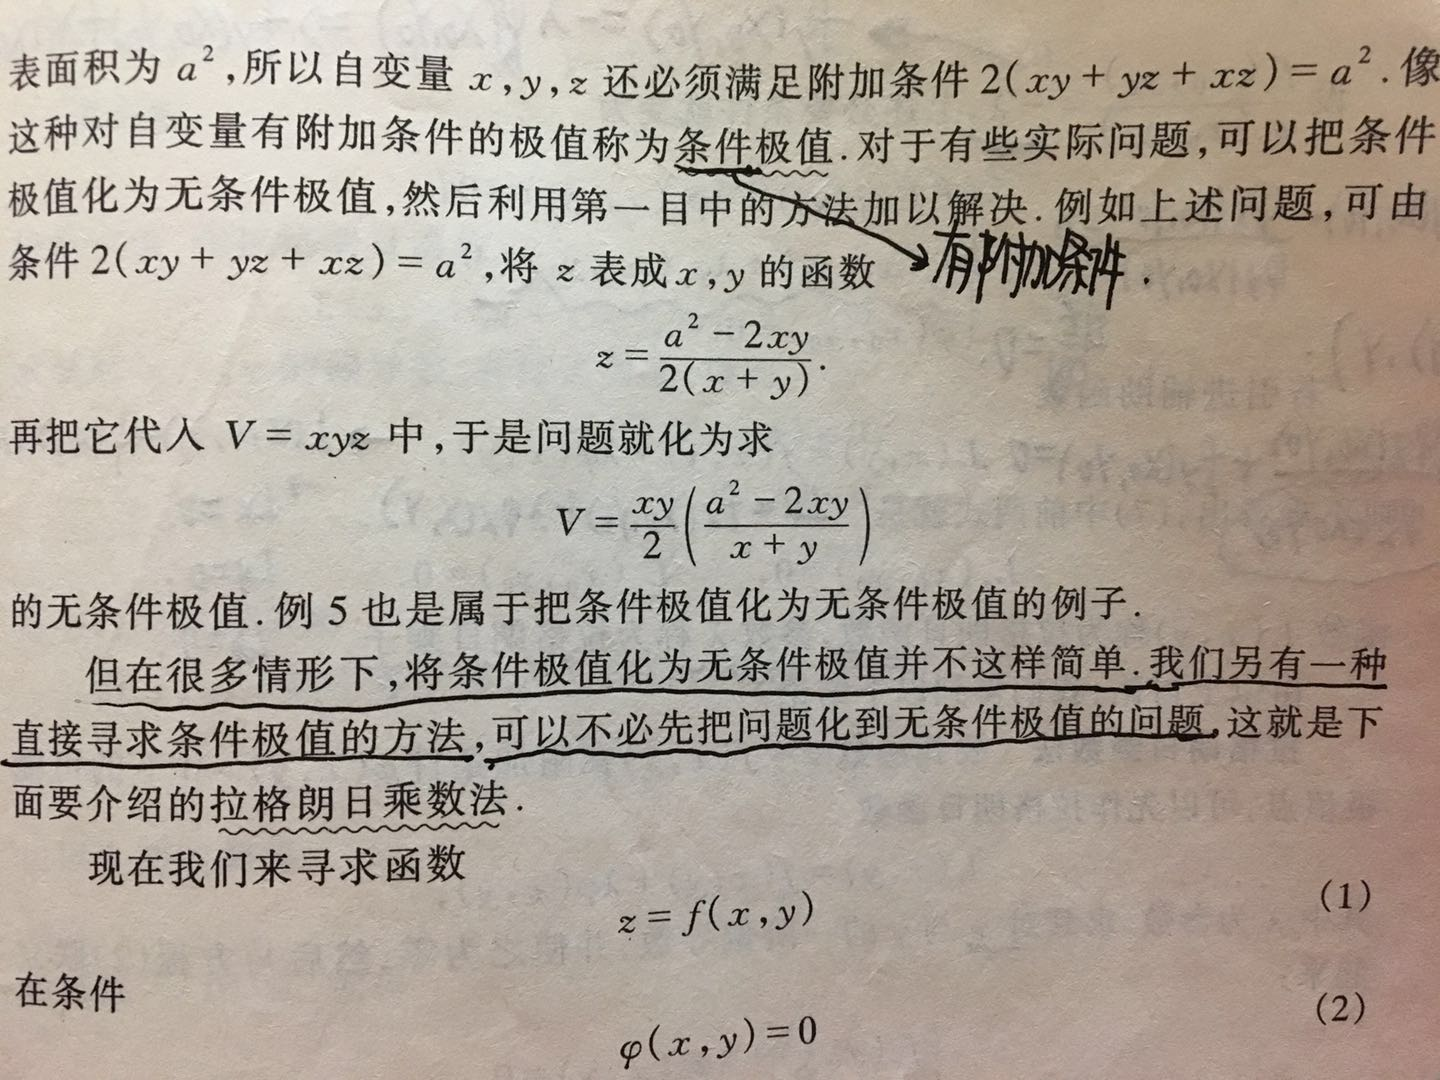 表面积为 a²,所以自变量 x,y,z 还必须满足附加条件 2(xy + yz + xz) = a². 像
这种对自变量有附加条件的极值称为条件极值. 对于有些实际问题,可以把条件
极值化为无条件极值,然后利用第一目中的方法加以解决. 例如上述问题,可由
条件 2(xy + yz + xz) = a²,将 z 表成 x,y 的函数
有附加条件.
z = \frac{a² - 2xy}{2(x + y)}.
再把它代入 V = xyz 中,于是问题就化为求
V = \frac{xy}{2}(\frac{a² - 2xy}{x + y})
的无条件极值. 例 5 也是属于把条件极值化为无条件极值的例子.
但在很多情形下,将条件极值化为无条件极值并不这样简单. 我们另有一种
直接寻求条件极值的方法,可以不必先把问题化到无条件极值的问题,这就是下
面要介绍的拉格朗日乘数法.
现在我们来寻求函数
z = f(x,y) (1)
在条件
φ(x,y) = 0 (2)